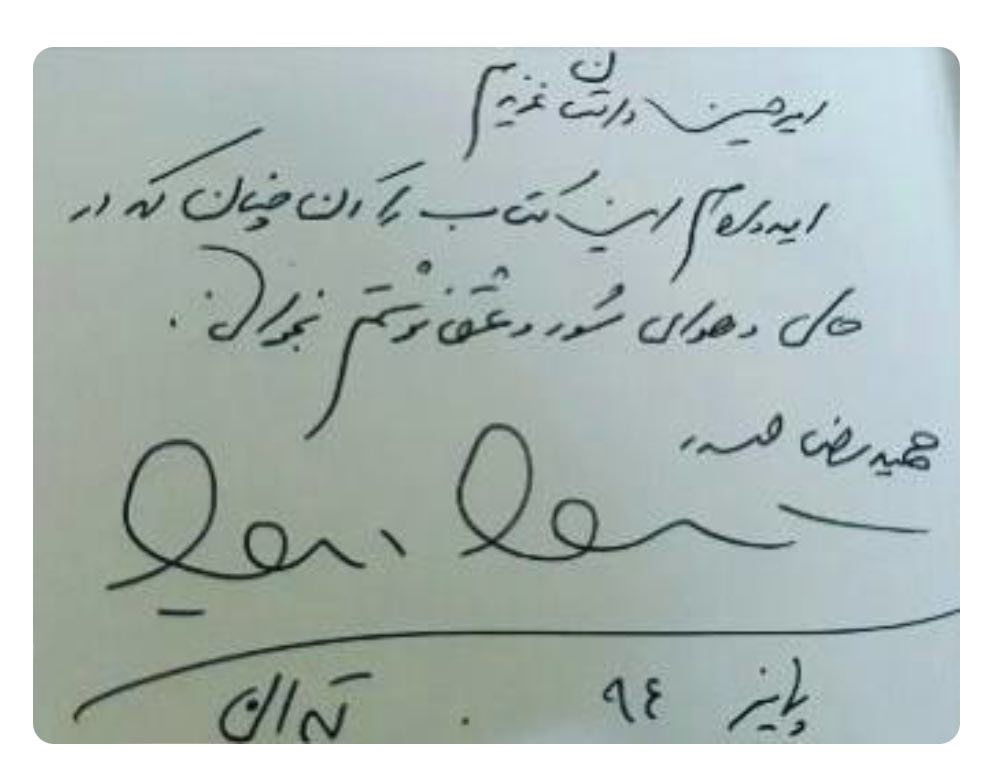 امیرحسین داستان عزیزم
امیدوارم این کتاب را آن چنان که در
حال و هوای شور و عشق نوشتم بخوانی.
حمیدرضا صدر
پاییز ۹۴ . تهران